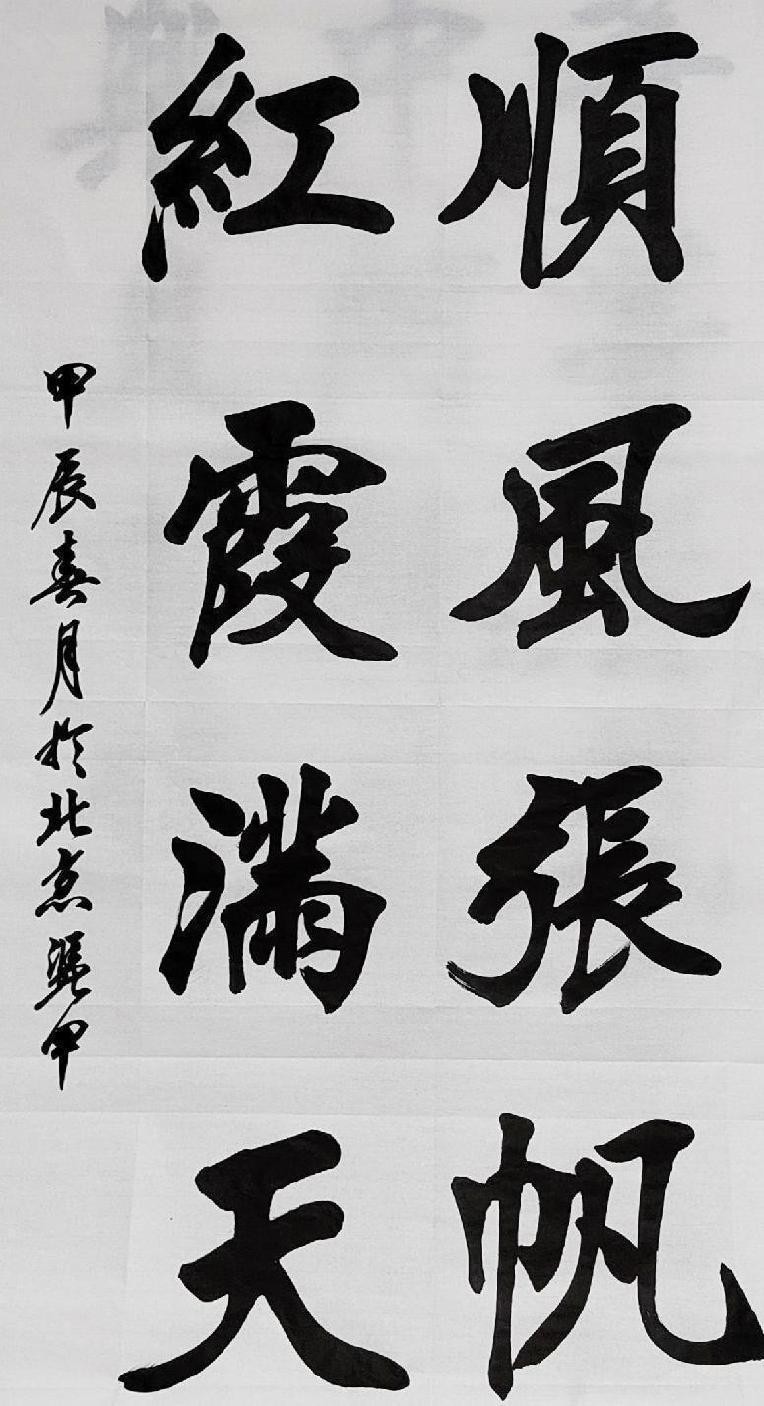 順風張帆
紅霞滿天
甲辰春月於北京